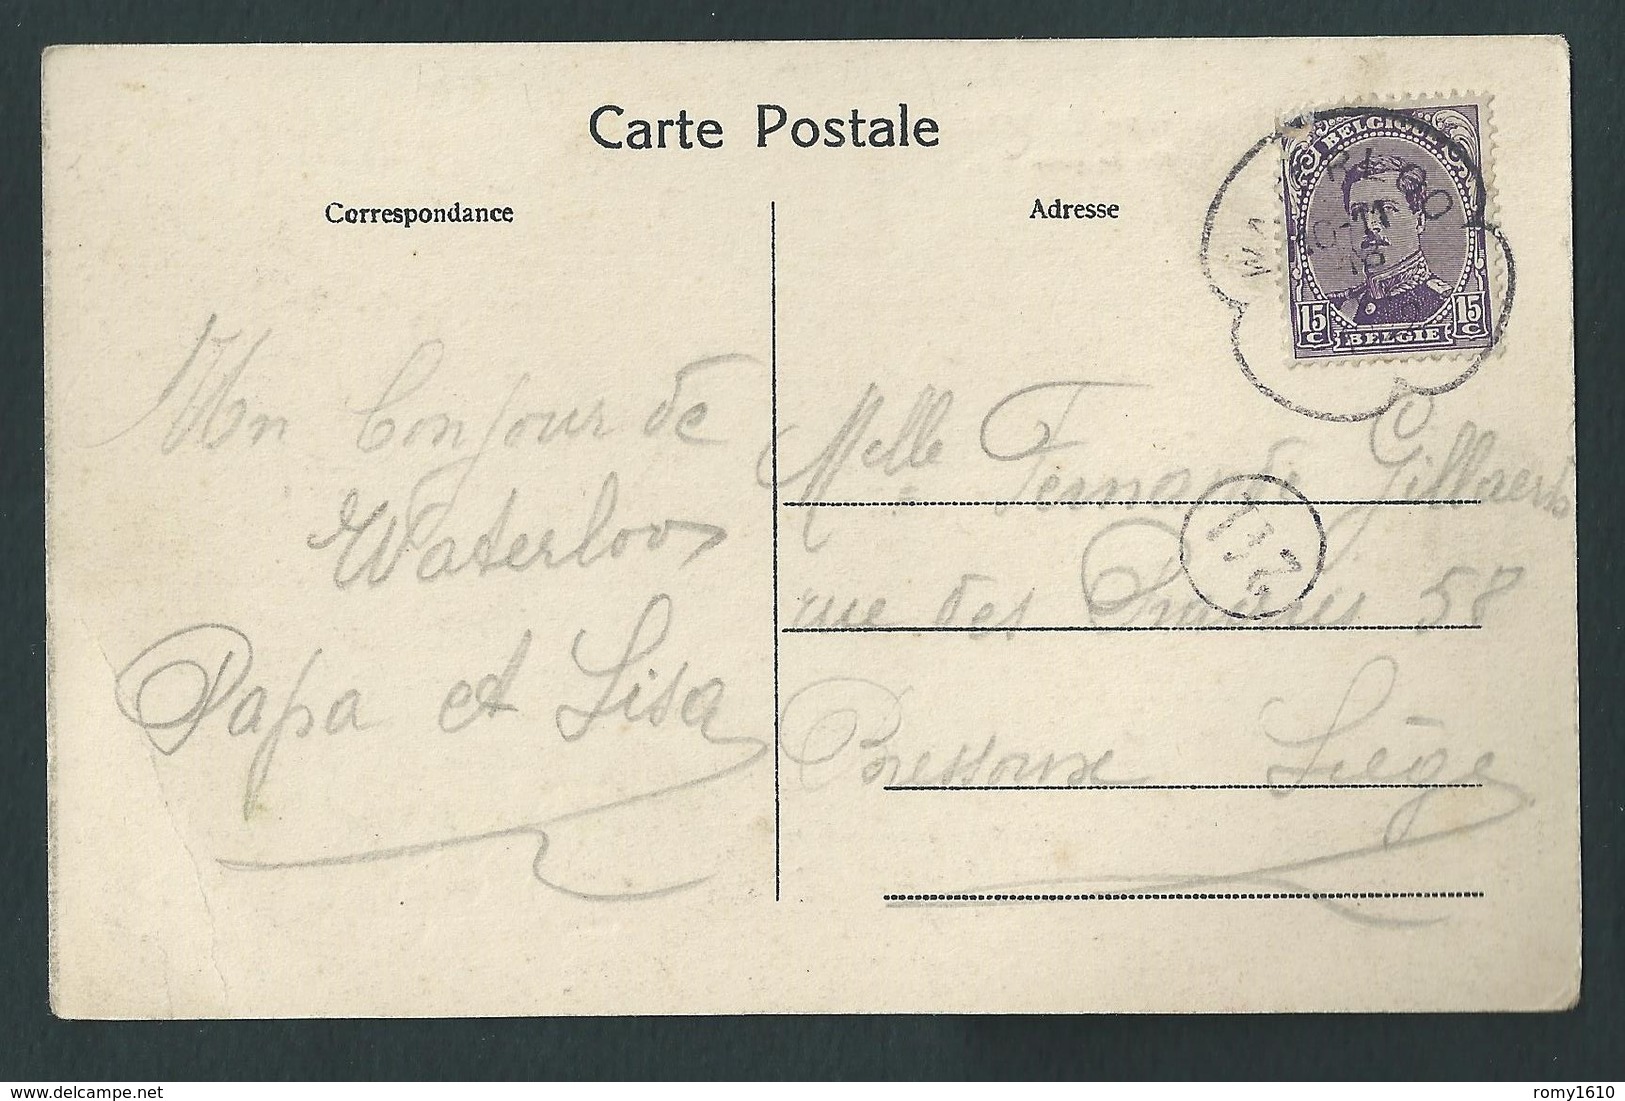 Carte Postale
Correspondance
Adresse
BELGIQUE
15 C
BELGIE
15 C
WATERLOO
Un bonjour de
Waterloo
Papa et Lisa
Melle Fernande Gillaerts
rue des 58
Bressoux Liège
112
delcampe.net
romy1610